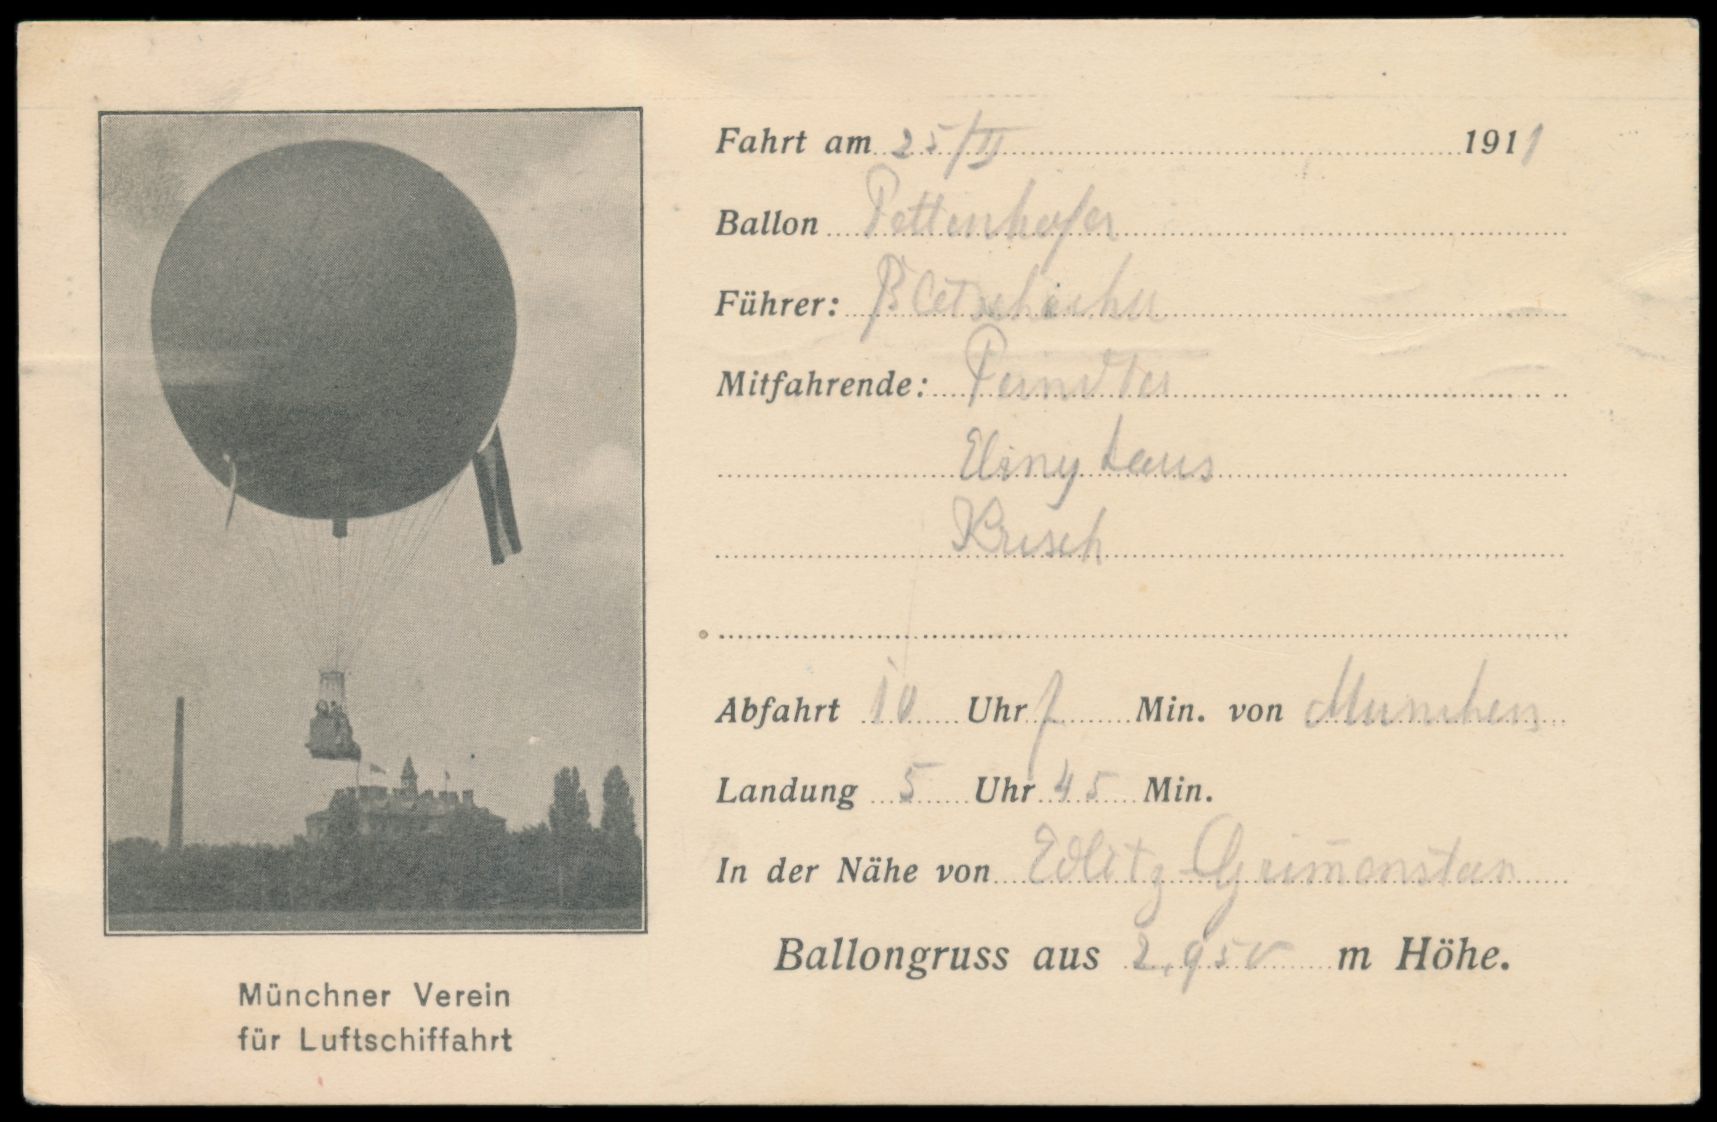 Fahrt am 25/II 1911
Ballon Pettenhofer
Führer:
Mitfahrende:
Krisch
Abfahrt 10 Uhr 7 Min. von München
Landung 5 Uhr 45 Min.
In der Nähe von Edlitz-Grimmenstein
Ballongruss aus 2,950 m Höhe.
Münchner Verein
für Luftschiffahrt